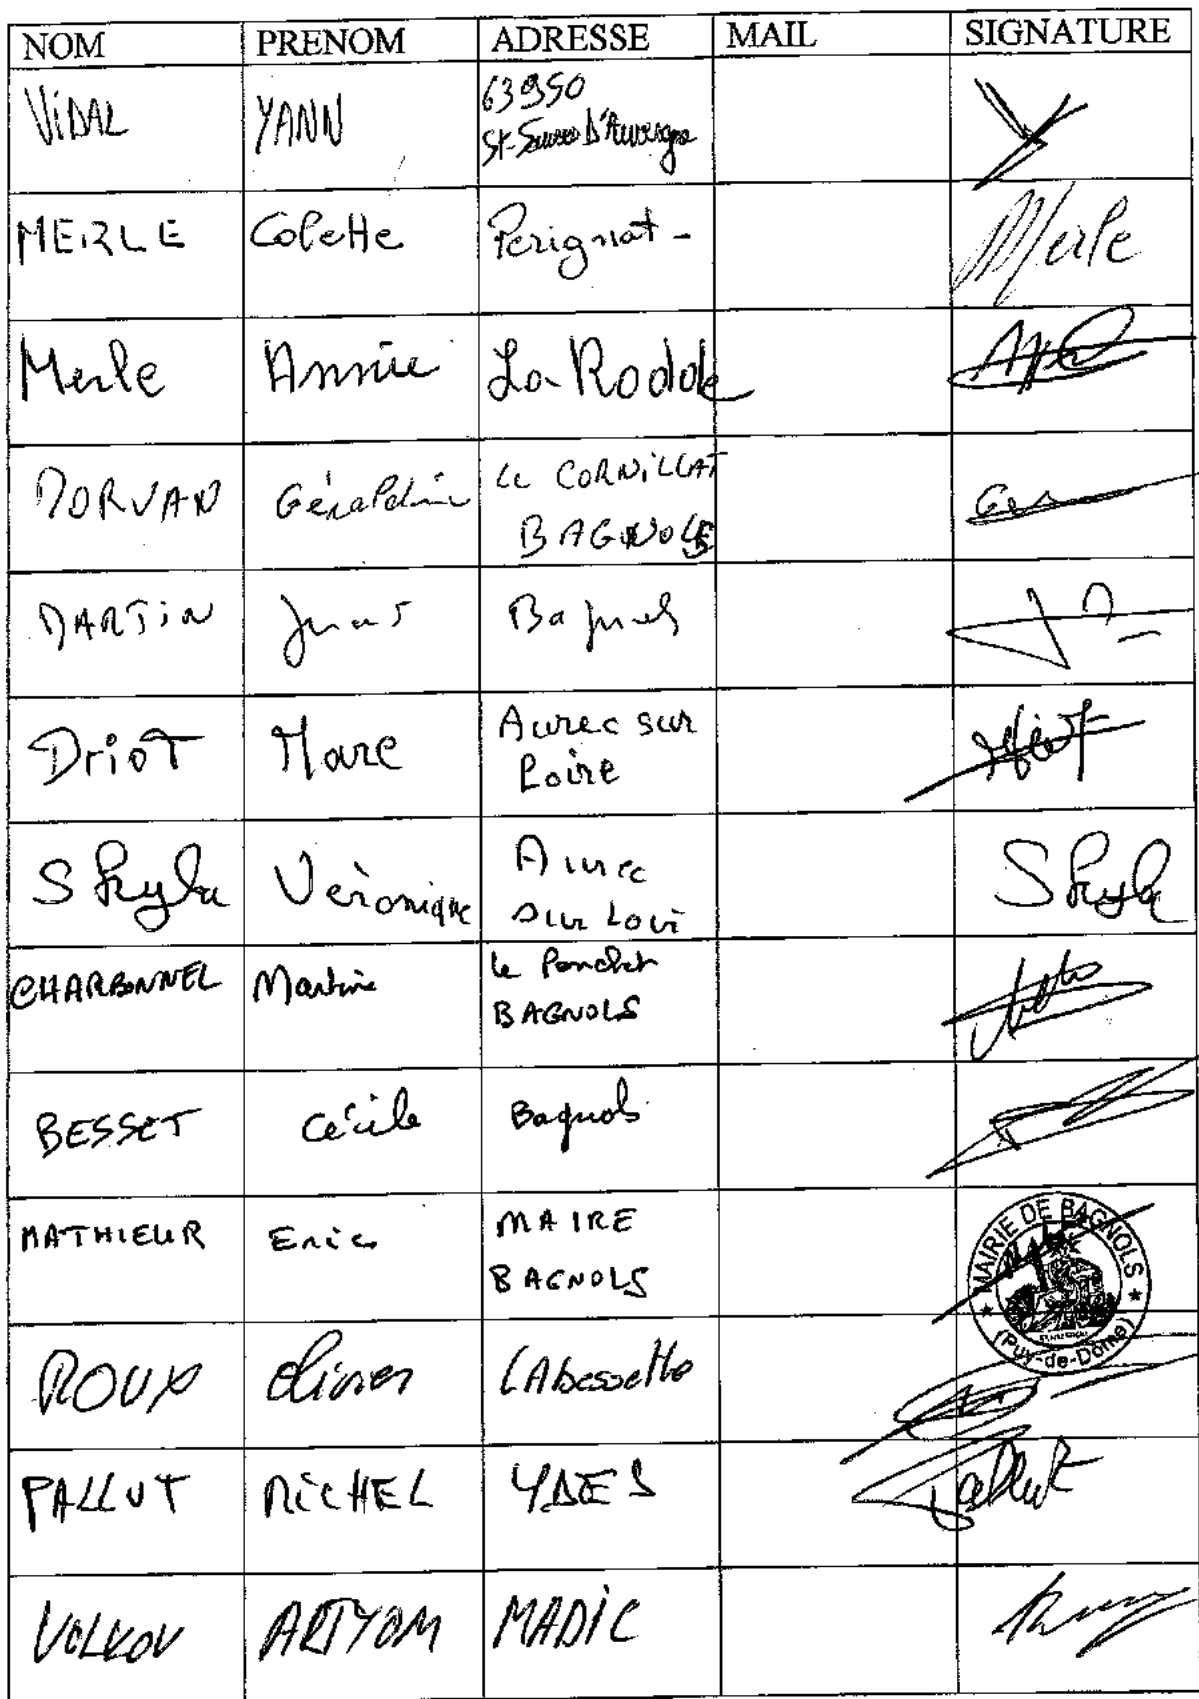 NOM PRENOM ADRESSE MAIL SIGNATURE
ViDAL YANN 63950
St-Sauves D'Auvergne
MERLE Colette Perignat - Merle
Merle Annie La Rodde
DORVAN Géraldine Le CORNiLLAT
BAGNOLS
MARTiN Bagnols
DrioT Marc Aurec sur
Loire
Skyla Véronique Aurec
sur Loire Skyla
CHARBONNEL Martine le
BAGNOLS
BESSET Cécile Bagnols
MATHIEUR Eric MAIRE
BAGNOLS
MAIRIE DE BAGNOLS
(Puy-de-Dôme)
ROUX Olivier LAbessette
PALLUT MiCHEL YDES Pallut
VOLKOV ARTYOM MADIC